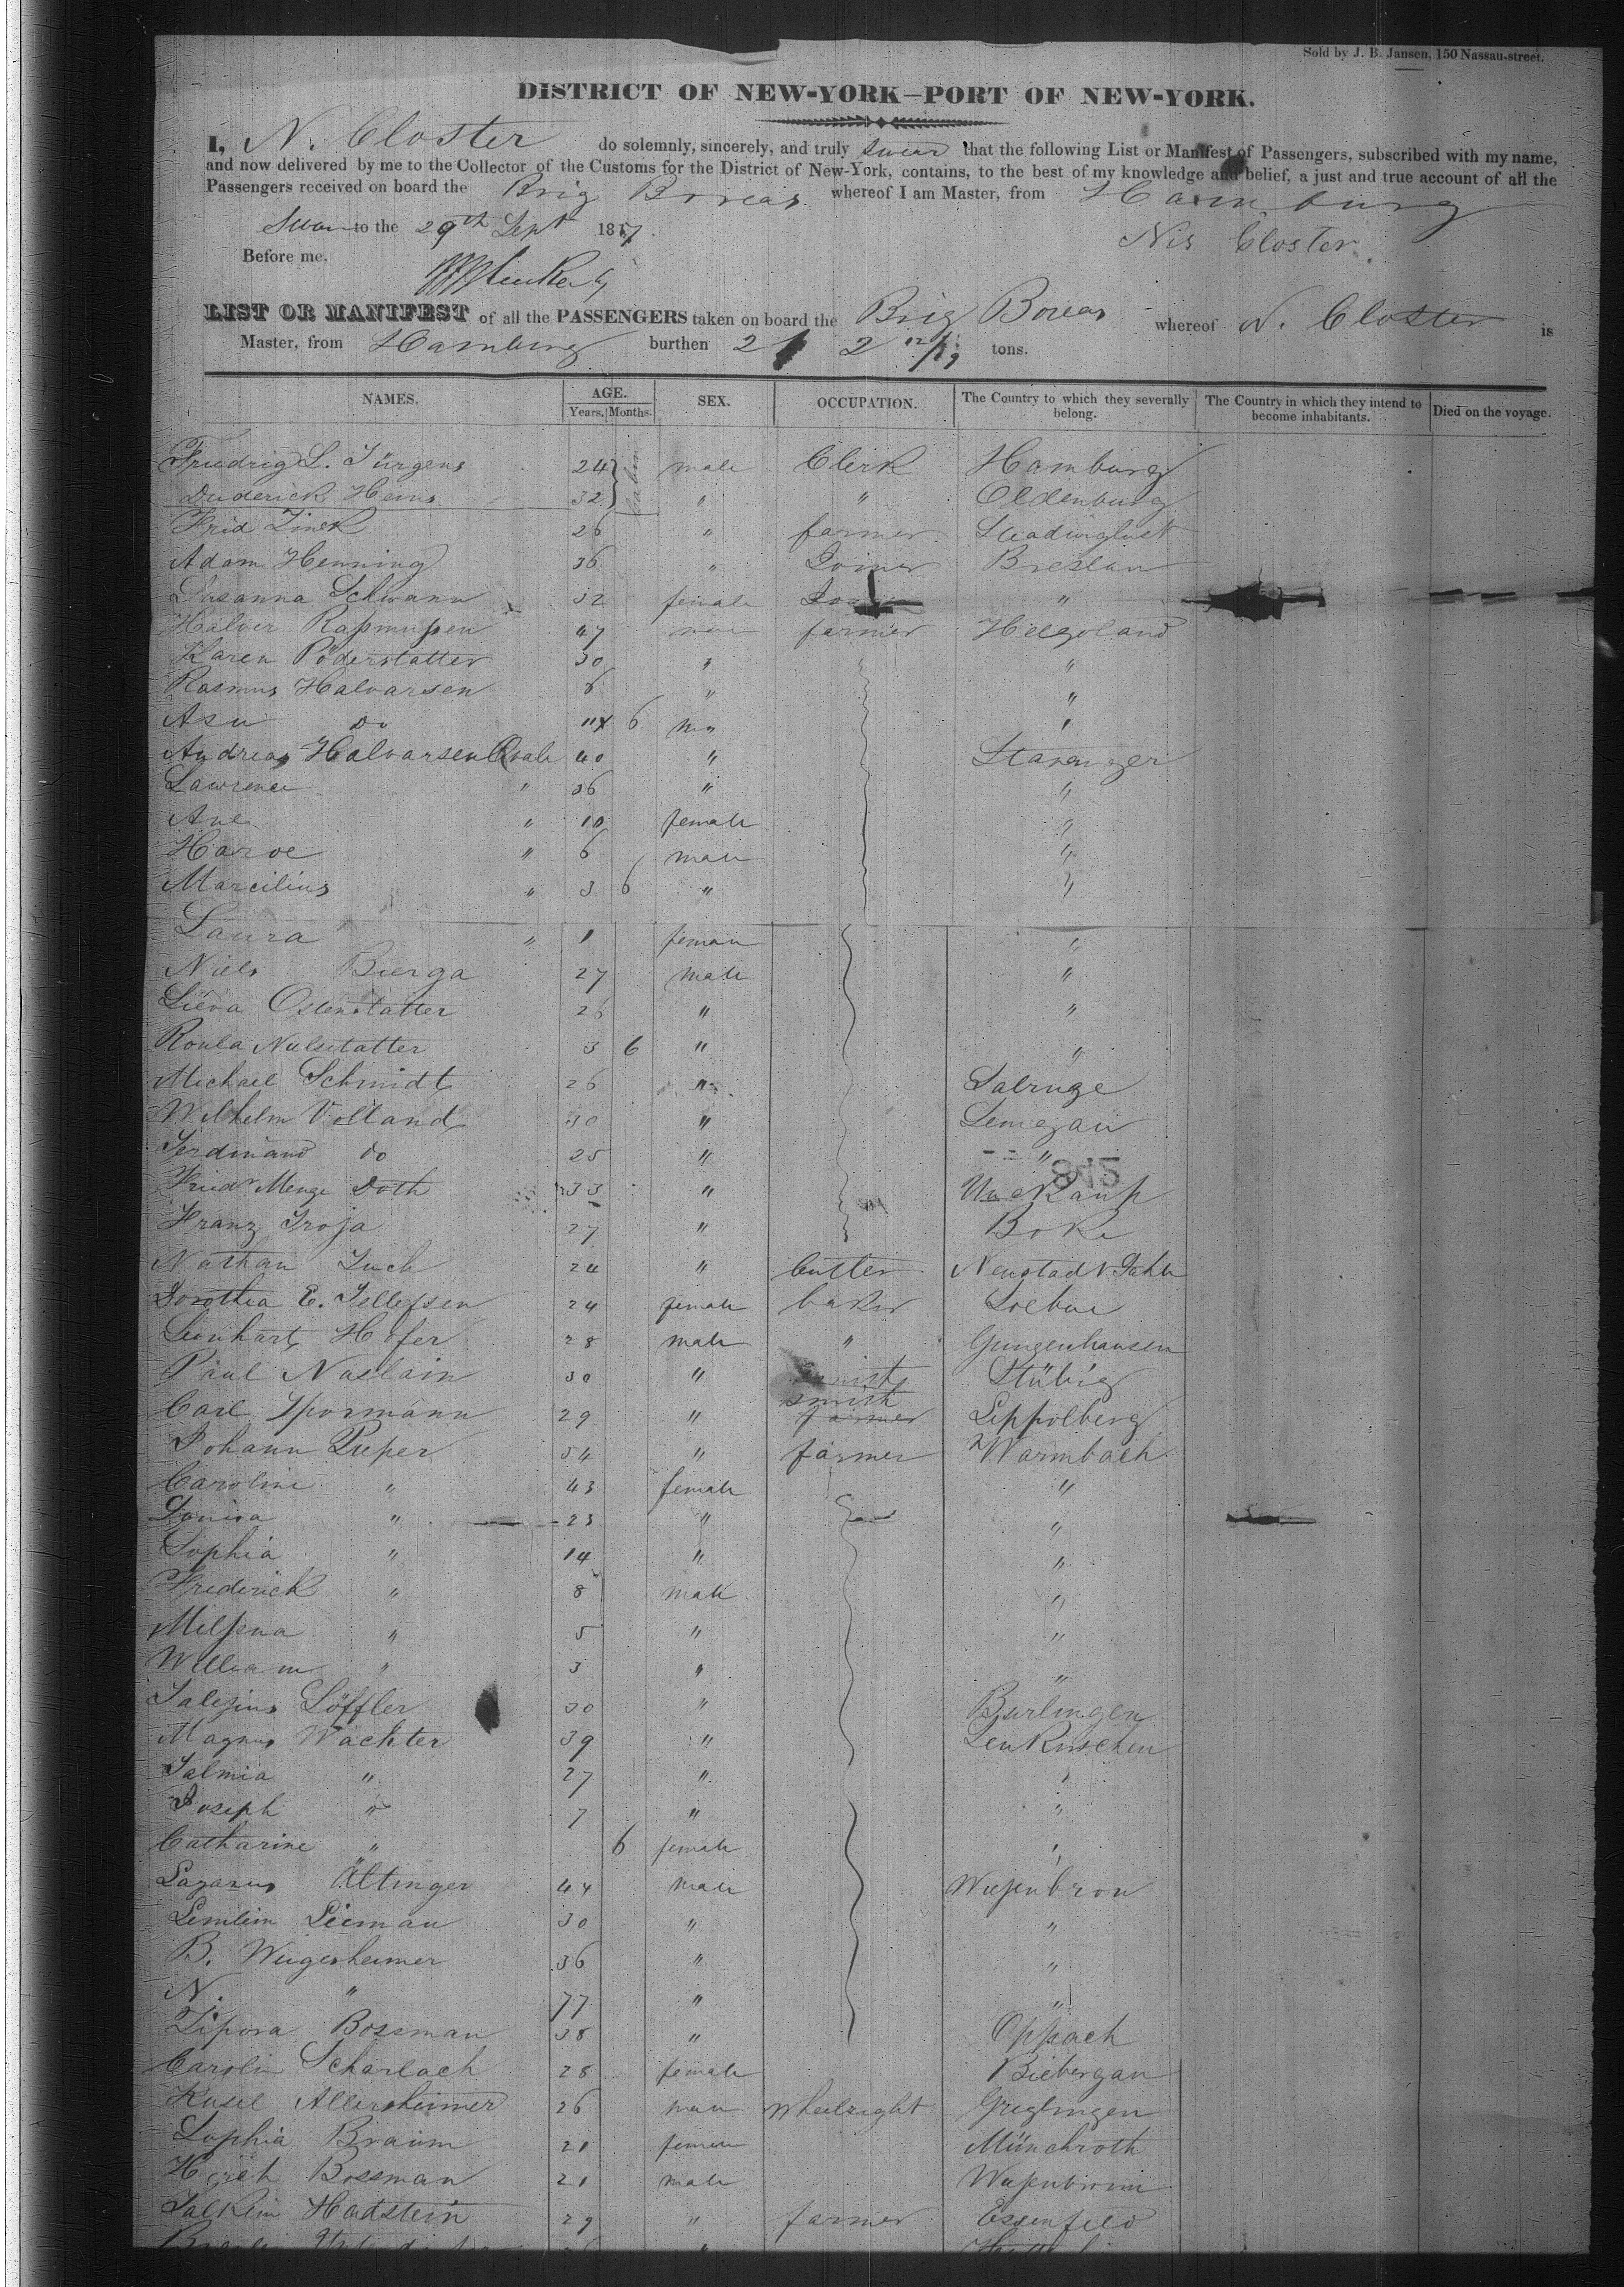 Sold by J. B. Jansen, 150 Nassau-street.
DISTRICT OF NEW-YORK—PORT OF NEW-YORK.
I, N. Closter do solemnly, sincerely, and truly swear that the following List or Manifest of Passengers, subscribed with my name,
and now delivered by me to the Collector of the Customs for the District of New-York, contains, to the best of my knowledge and belief, a just and true account of all the
Passengers received on board the Brig Boreas whereof I am Master, from Hamburg
Sworn to the 29th Sept 18
Nis Closter
Before me,
LIST OR MANIFEST of all the PASSENGERS taken on board the Brig Boreas whereof N. Closter is
Master, from Hamburg burthen tons.
NAMES. AGE. Years. Months. SEX. OCCUPATION. The Country to which they severally belong. The Country in which they intend to become inhabitants. Died on the voyage.
Friedrig L. Jürgens 24 male Clerk Hamburg
Diederick Heins 32 " " Oldenburg
Fried Zinek 26 " farmer
Adam Henning 36 " Joiner Breslau
Susanna Schwann 32 female "
Halver Rasmussen 47 male farmer Helgoland
Karen Pöderstatter 30 " "
Rasmus Halvarsen 6 " "
Asu Do 6 "
Andreas Halvarsen Qvale 40 " Stavanger
Lawrence " 36 " "
Ane " 10 female "
Haroe " 6 male "
Marcilius " 3 6 " "
Laura " 1 female "
Niels Bierga 27 male "
Sieva Ostenstatter 26 " "
Roula Nielsstatter 3 6 " "
Michael Schmidt 26 " Salruge
Wilhelm Volland 30 " Lemgau
Ferdinand do 25 " "
845
Fried Menge Doth 33 "
Franz Troja 27 " Boke
Nathan Tuch 24 " Cutler Neustad
Dorothea E. Tellefsen 24 female baker Loebue
Leonhart Hofer 28 male " Gungenhausen
Paul Naslain 30 " Stübig
Carl Spormann 29 " smith farmer Lippolberg
Johann Pieper 54 " farmer Warmbach
Caroline " 43 female "
Louisa " 23 " "
Sophia " 14 " "
Frederick " 8 male "
Milsena " 5 " "
William " 3 " "
Salesius Löffler 30 " Burlingen
Magnus Wachter 39 " Leukirschen
Salmia " 27 " "
Joseph " 7 " "
Catharine " 6 female "
Lazarus Ältinger 44 male
Lemlein Lieman 30 " "
B. Weigersheimer 36 " "
N. " 77 " "
Zipora Bossman 38 " Oppach
Carolin Scharlach 28 female Biebergau
Kusel Allersheimer 26 male Wheelright Greglingen
Sophia Braun 21 female Münchroth
Bossman 21 male
Hadstein 29 " farmer Essenfeld